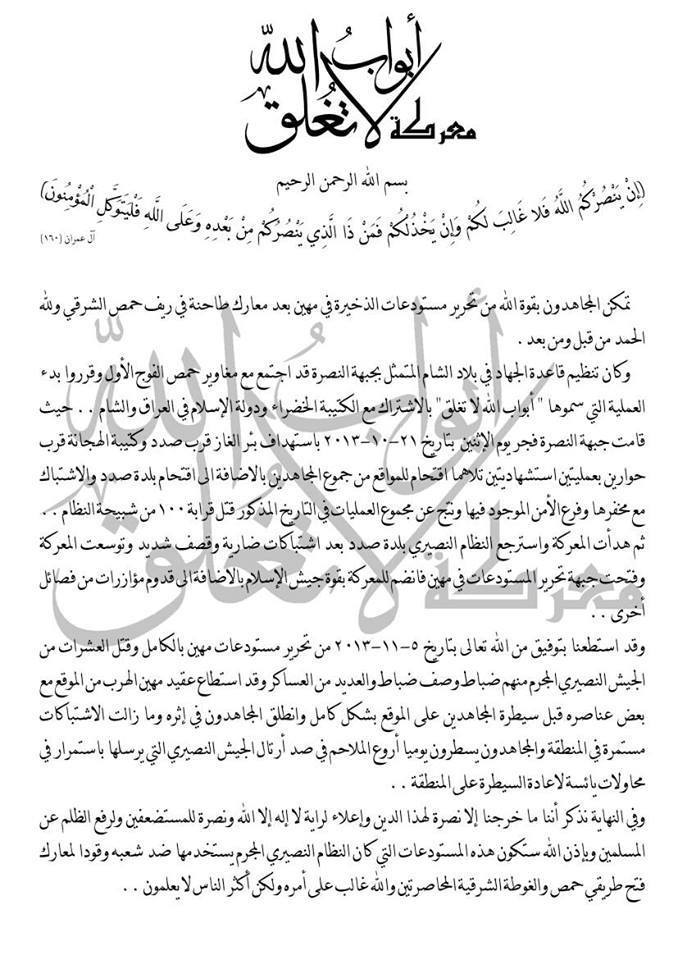 أبواب الله
معركة لا تُغلق
بسم الله الرحمن الرحيم
(إِنْ يَنْصُرْكُمُ اللَّهُ فَلا غَالِبَ لَكُمْ وَإِنْ يَخْذُلْكُمْ فَمَنْ ذَا الَّذِي يَنْصُرُكُمْ مِنْ بَعْدِهِ وَعَلَى اللَّهِ فَلْيَتَوَكَّلِ الْمُؤْمِنُونَ)
آل عمران (١٦٠)
تمكن المجاهدون بقوة الله من تحرير مستودعات الذخيرة في مهين بعد معارك طاحنة في ريف حمص الشرقي ولله
الحمد من قبل ومن بعد .
وكان تنظيم قاعدة الجهاد في بلاد الشام المتمثل بجبهة النصرة قد اجتمع مع مغاوير حمص الفوج الأول وقرروا بدء
العملية التي سموها " أبواب الله لا تغلق" بالاشتراك مع الكتيبة الخضراء ودولة الإسلام في العراق والشام . . حيث
قامت جبهة النصرة فجر يوم الإثنين بتاريخ ٢١-١٠-٢٠١٣ باستهداف بئر الغاز قرب صدد وكتيبة الهجانة قرب
حوارين بعمليتين استشهاديتين تلاهما اقتحام للمواقع من جموع المجاهدين بالاضافة الى اقتحام بلدة صدد والاشتباك
مع مخفرها وفرع الأمن الموجود فيها ونتج عن مجموع العمليات في التاريخ المذكور قتل قرابة ١٠٠ من شبيحة النظام . .
ثم هدأت المعركة واسترجع النظام النصيري بلدة صدد بعد اشتباكات ضارية وقصف شديد وتوسعت المعركة
وفتحت جبهة تحرير المستودعات في مهين فانضم للمعركة بقوة جيش الإسلام بالاضافة الى قدوم مؤازرات من فصائل
أخرى . .
وقد استطعنا بتوفيق من الله تعالى بتاريخ ٥-١١-٢٠١٣ من تحرير مستودعات مهين بالكامل وقتل العشرات من
الجيش النصيري المجرم منهم ضباط وصف ضباط والعديد من العساكر وقد استطاع عقيد مهين الهرب من الموقع مع
بعض عناصره قبل سيطرة المجاهدين على الموقع بشكل كامل وانطلق المجاهدون في إثره وما زالت الاشتباكات
مستمرة في المنطقة والمجاهدون يسطرون يوميا أروع الملاحم في صد أرتال الجيش النصيري التي يرسلها باستمرار في
محاولات يائسة لاعادة السيطرة على المنطقة . .
وفي النهاية نذكر أننا ما خرجنا إلا نصرة لهذا الدين وإعلاء لراية لا إله إلا الله ونصرة للمستضعفين ولرفع الظلم عن
المسلمين وبإذن الله ستكون هذه المستودعات التي كان النظام النصيري المجرم يستخدمها ضد شعبه وقودا لمعارك
فتح طريقي حمص والغوطة الشرقية المحاصرتين والله غالب على أمره ولكن أكثر الناس لا يعلمون . .